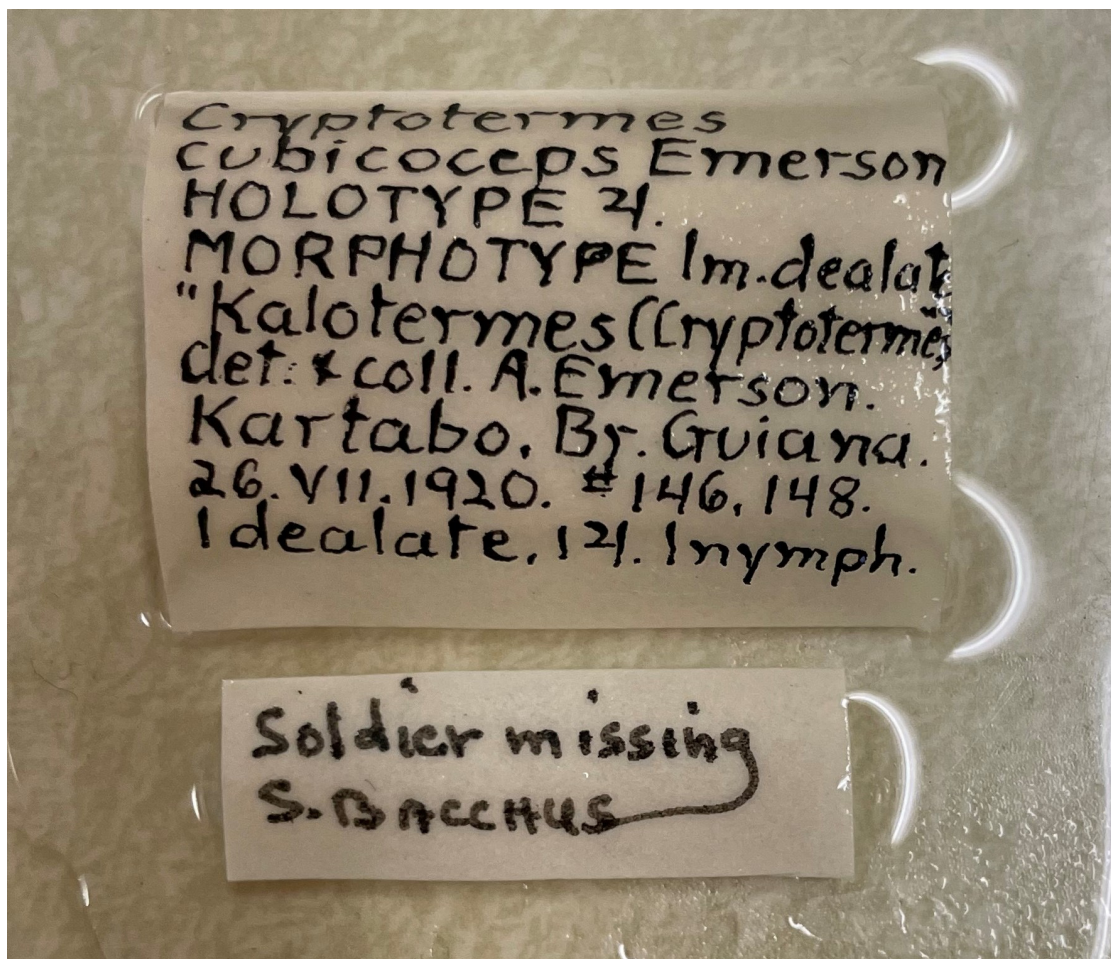 Cryptotermes
cubicoceps Emerson
HOLOTYPE ♃.
MORPHOTYPE Im.dealat
"Kalotermes (Cryptotermes)"
det. & coll. A. Emerson.
Kartabo. Br. Guiana.
26.VII.1920. #146, 148.
1 dealate. 1 ♃. 1 nymph.
Soldier missing
S. BACCHUS